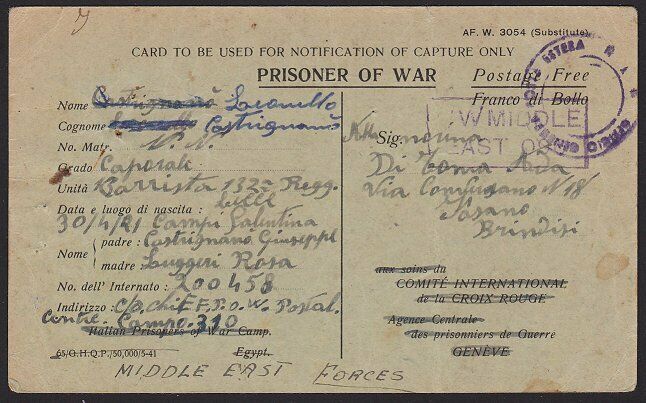 AF. W. 3054 (Substitute)
CARD TO BE USED FOR NOTIFICATION OF CAPTURE ONLY
PRISONER OF WAR
Postage Free
Franco di Bollo
POSTA ESTERA
W MIDDLE
EAST
Nome Castrignanò Leonello
Cognome Castrignanò
No. Matr. N. N.
Grado Caporale
Unità Carrista 132a Regg.
Data e luogo di nascita : Lecce
30/4/21 Campi Salentina
Nome
padre : Castrignano Giuseppe
madre Luggeri Rosa
No. dell' Internato : 200458
Indirizzo : C/o Chief P.O.W. Postal.
Centre. Campo. 310
Italian Prisoners of War Camp.
65/G.H.Q.P./50,000/5-41
Egypt.
MIDDLE EAST FORCES
Sig.
Di Coma Aida
Via N 18
Fasano
Brindisi
aux soins du
COMITÉ INTERNATIONAL
de la CROIX ROUGE
Agence Centrale
des prisonniers de Guerre
GENÈVE